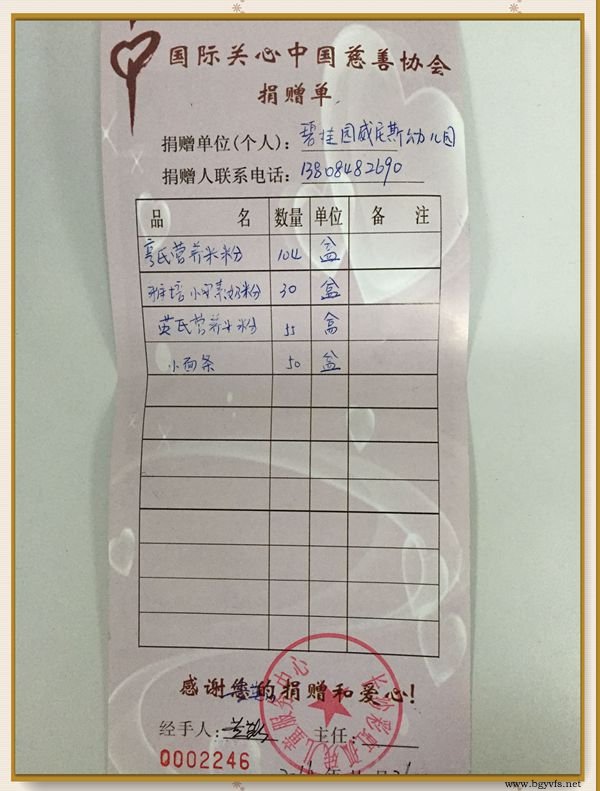 国际关心中国慈善协会
捐赠单
捐赠单位(个人): 碧桂园威尼斯幼儿园
捐赠人联系电话: 13808482690
品 名 数量 单位 备 注
亨氏营养米粉 104 盒
雅培小安素奶粉 30 盒
英氏营养米粉 55 盒
小面条 50 盒
感谢您的捐赠和爱心!
经手人: 主任:
0002246
长沙彩虹孤残儿童服务中心
www.bgyvfs.net